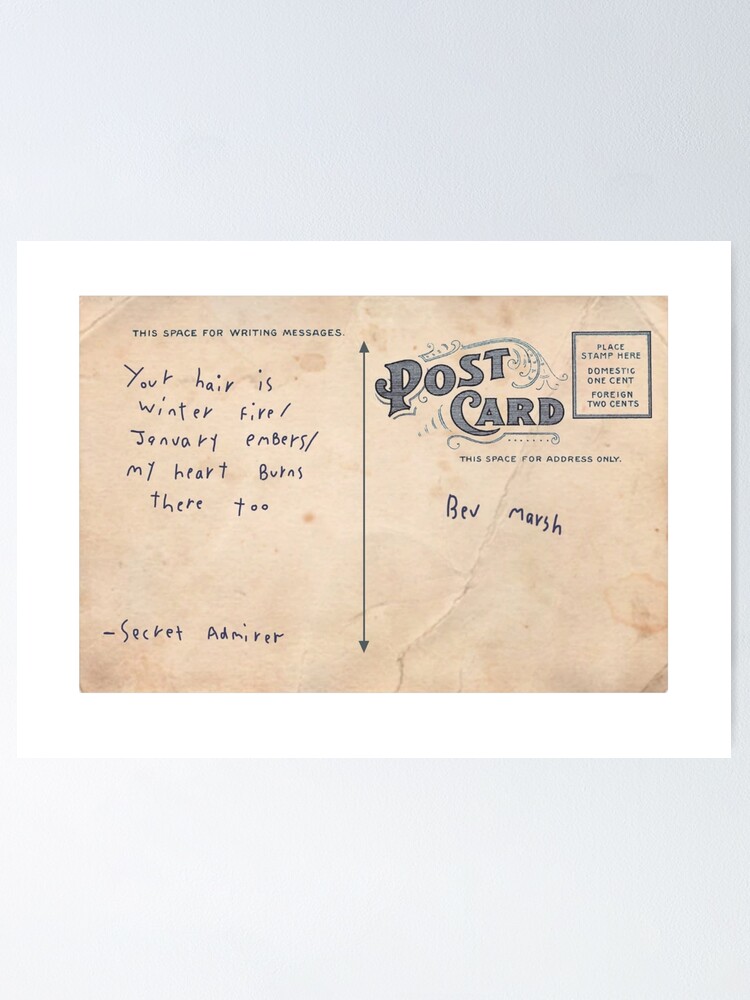 THIS SPACE FOR WRITING MESSAGES.
Your hair is
winter fire/
January embers/
my heart Burns
there too
-Secret Admirer
POST
CARD
PLACE
STAMP HERE
DOMESTIC
ONE CENT
FOREIGN
TWO CENTS
THIS SPACE FOR ADDRESS ONLY.
Bev Marsh